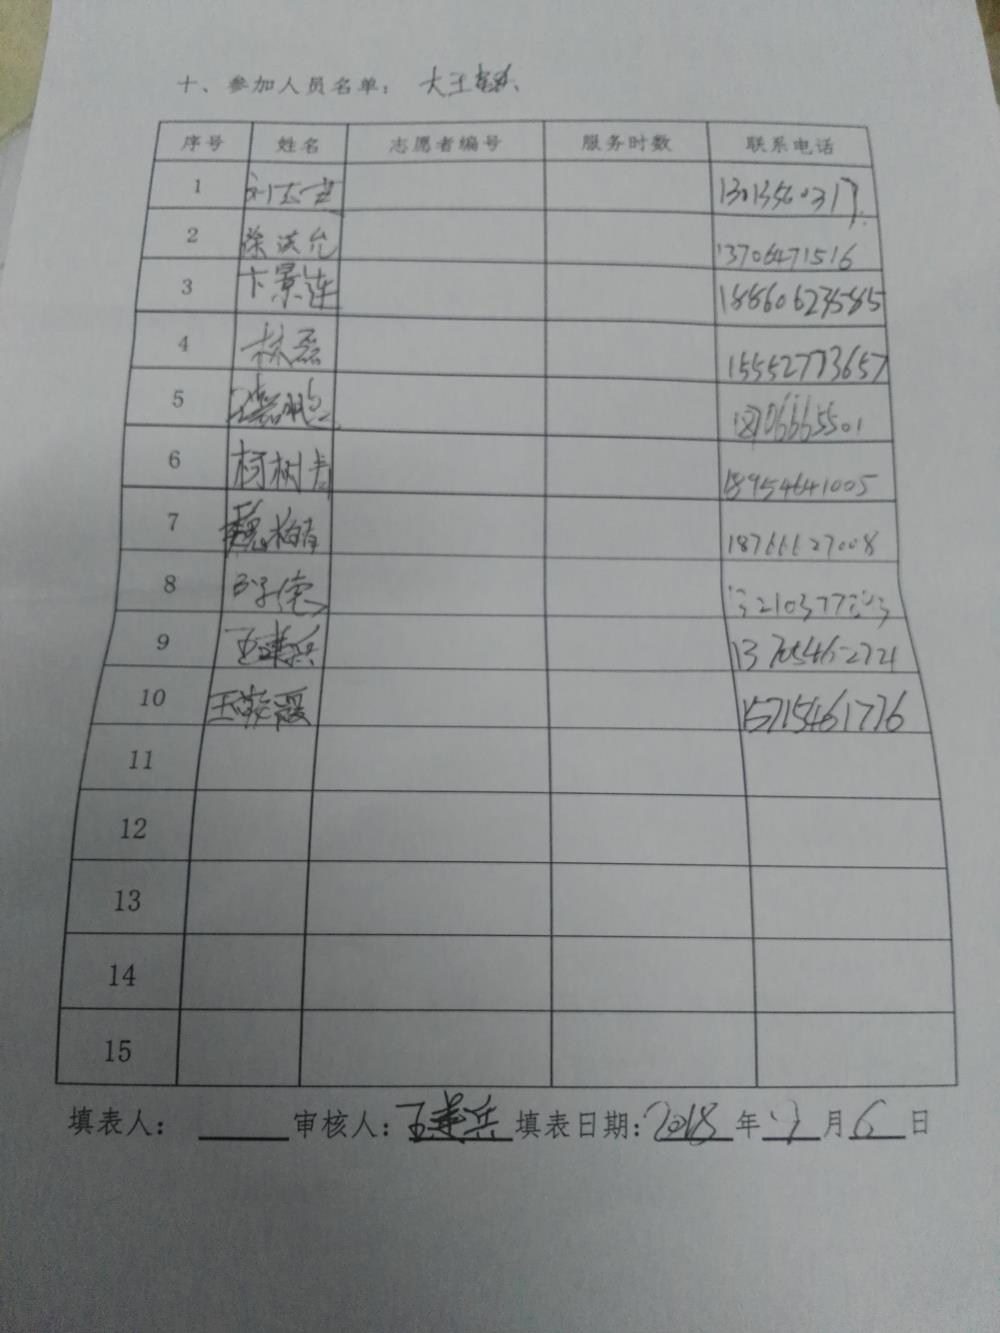 十、参加人员名单： 大王
序号 姓名 志愿者编号 服务时数 联系电话
1
2 徐洪允 13706471516
3 卞景连 18860623585
4 林磊 15552773657
5
6 杨树 18954641005
7 魏 18766627008
8
9 王建兵 13705462721
10 王 霞 15715461776
11
12
13
14
15
填表人： 审核人：王建兵 填表日期：2018 年 月 6 日